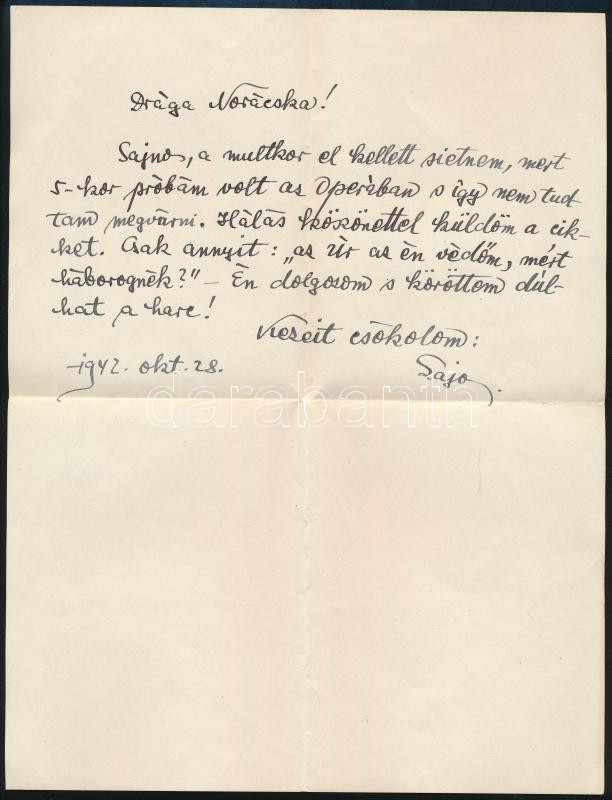 Drága Norácska!
Sajnos, a multkor el kellett sietnem, mert
5-kor próbám volt az Operában s így nem tud
tam megvárni. Hálás köszönettel küldöm a cik-
ket. Csak annyit: „az Úr az én védőm, mért
háborognék?" – Én dolgozom s köröttem dúl-
hat a harc!
Kezeit csókolom:
-1942. okt. 28.
Lajo
darabanth